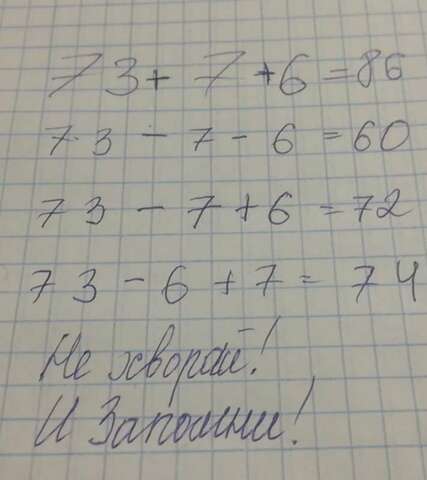 73 + 7 + 6 = 86
73 - 7 - 6 = 60
73 - 7 + 6 = 72
73 - 6 + 7 = 74
Не хворай!
И Запомни!